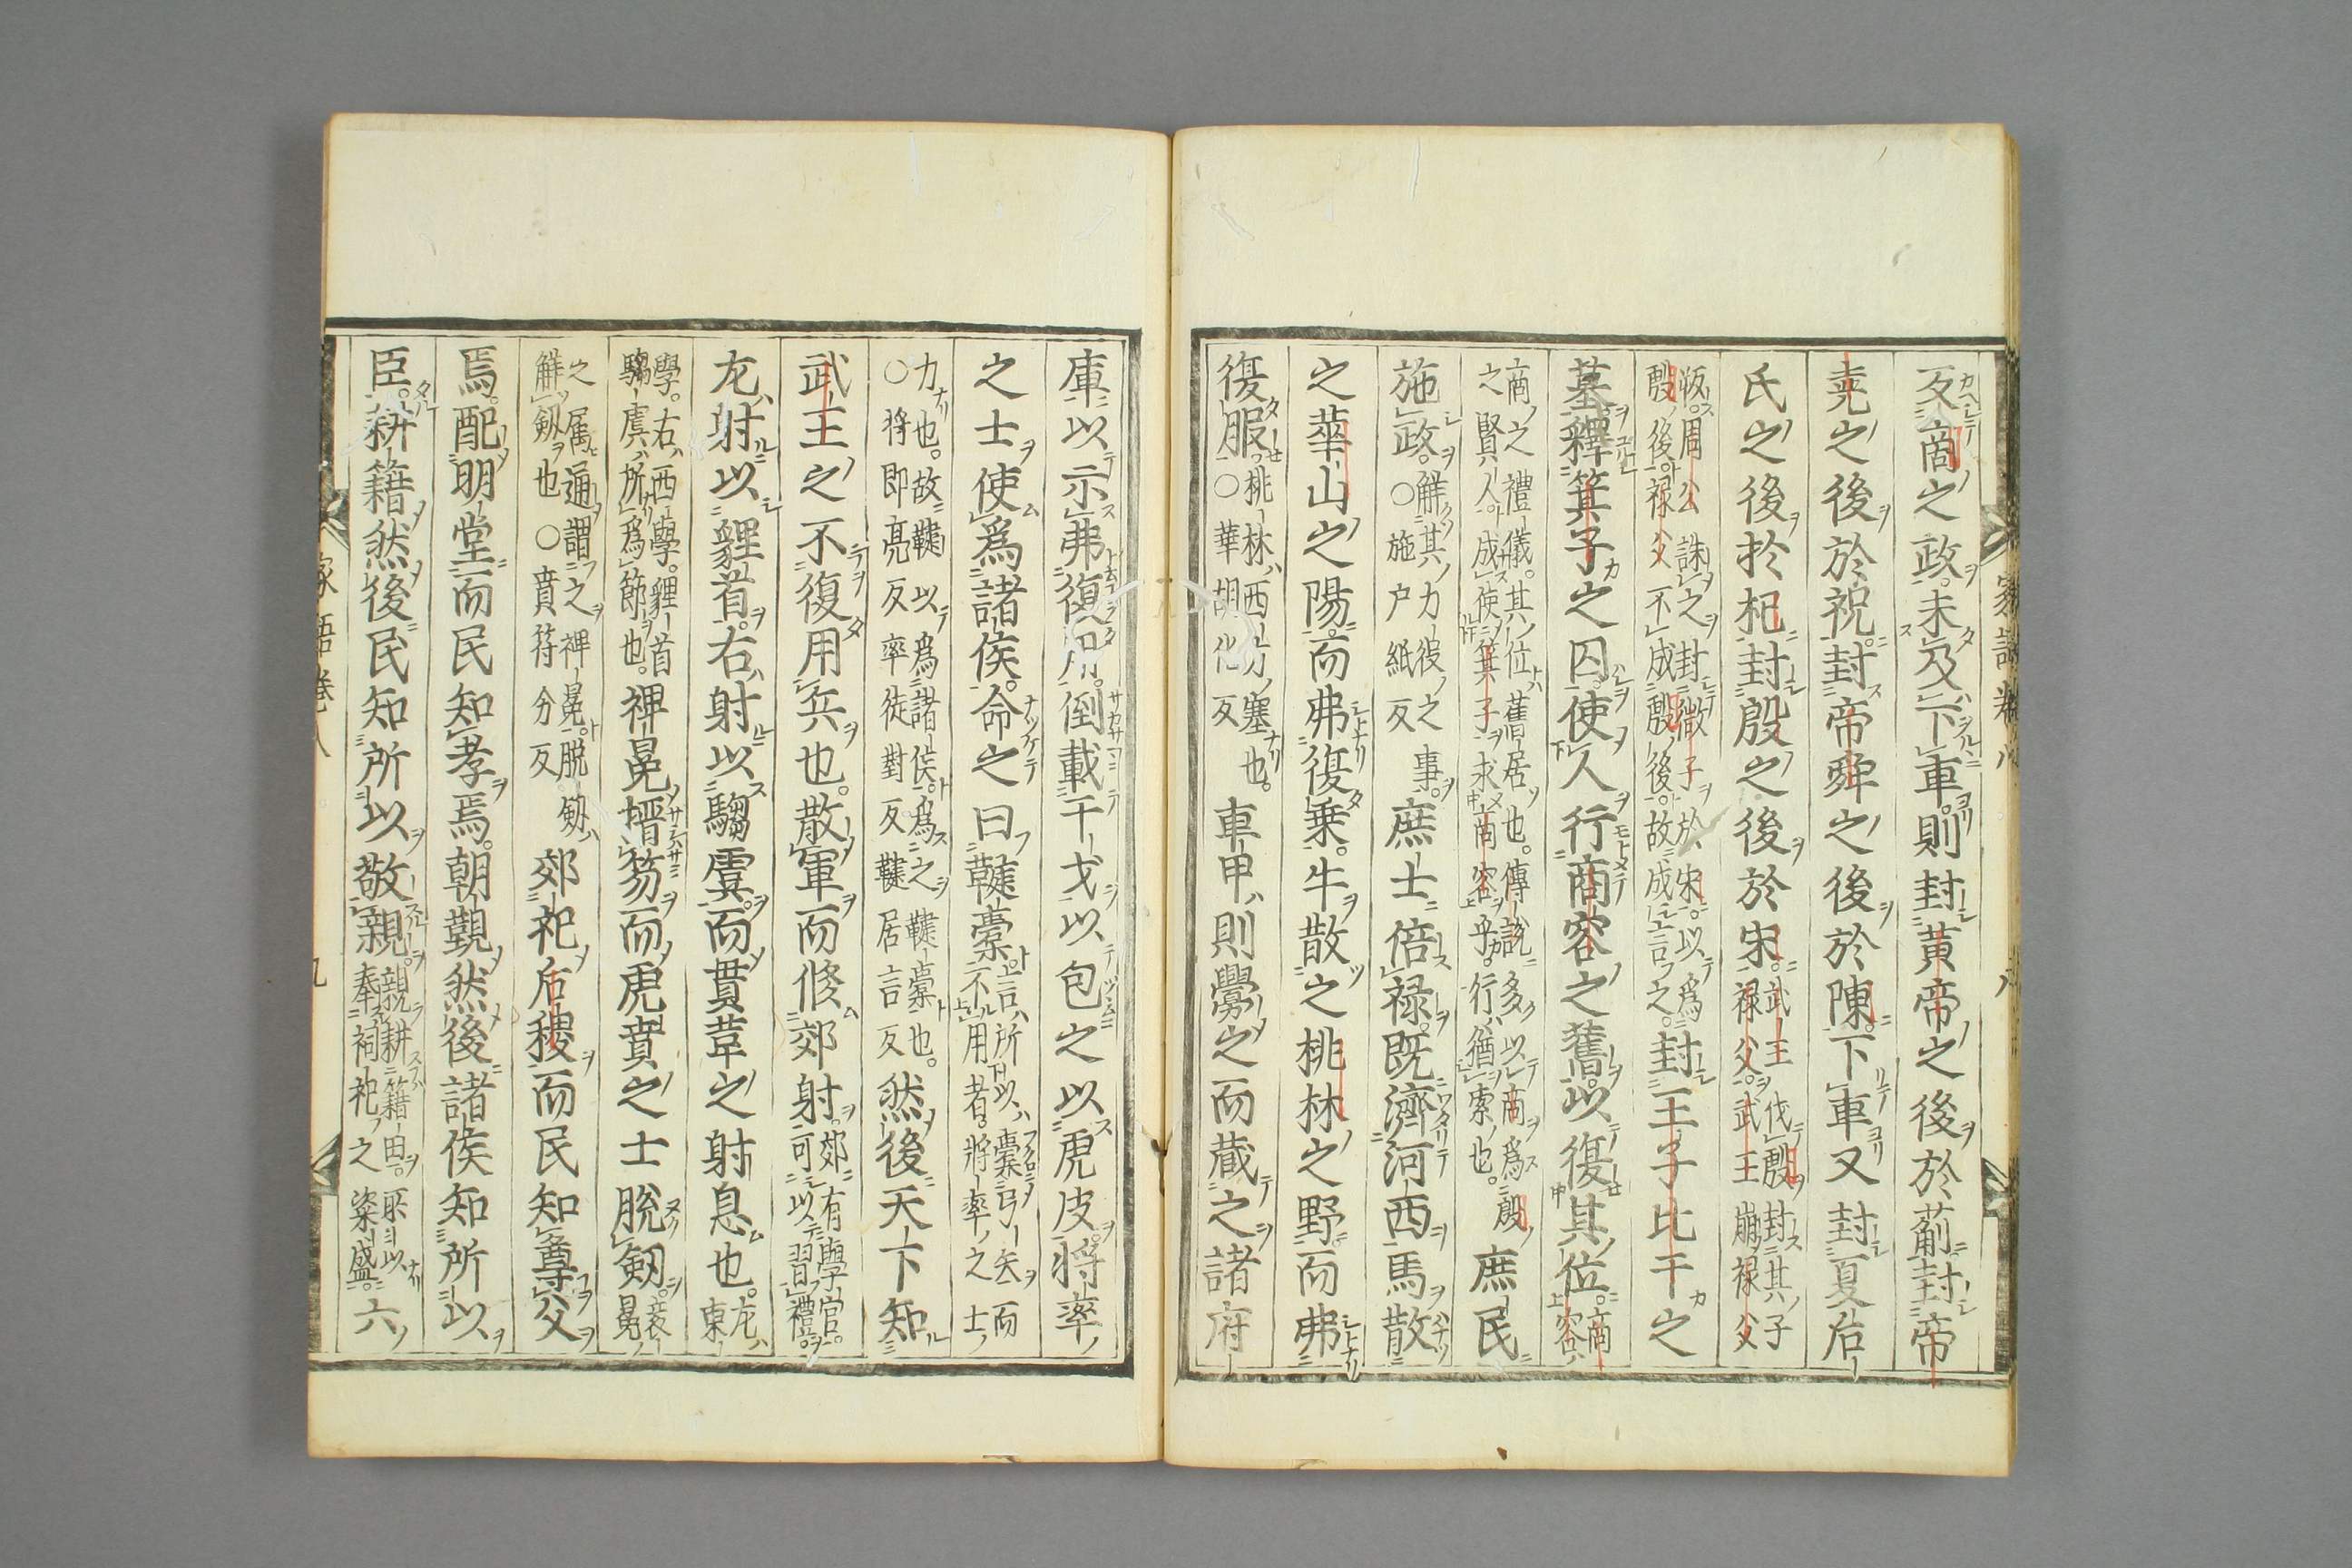 反商之政未及下車則封黃帝之後於薊封帝
堯之後於祝封帝舜之後於陳下車又封夏后
氏之後於杞封殷之後於宋武王伐殷封其子祿父武王崩祿父
叛周公誅之封微子於宋以為殷後祿父不成殷後故成言之封王子比干之
墓釋箕子之囚使人行商容之舊以復其位商容
商之禮儀其位舊居也傳說多以商為殷之賢人成使箕子求商容乎行猶索也庶民
施政解其力役之事○施户紙反庶士倍祿既濟河西馬散
之華山之陽而弗復乗牛散之桃林之野而弗
復服桃林西方塞也○華胡化反車甲則釁之而藏之諸府
庫以示弗復用倒載干戈以包之以虎皮將率
之士使爲諸侯命之曰鞬櫜言所以櫜弓矢而不用者將率之士
力也故鞬以爲諸侯爲之鞬櫜也○將即亮反率徒對反鞬居言反然後天下知
武王之不復用兵也散軍而修郊射郊有學官可以習禮
左射以貍首右射以騶虞而貫革之射息也左東
學右西學貍首騶虞所爲節也裨冕搢笏而虎賁之士脫劒衮冕
之屬通謂之裨冕脫劒解劒也○賁符分反郊祀后稷而民知尊父
焉配明堂而民知孝焉朝覲然後諸侯知所以
臣耕籍然後民知所以敬親親耕籍田所以奉祠祀之粢盛六
家語卷八
九
家語卷八